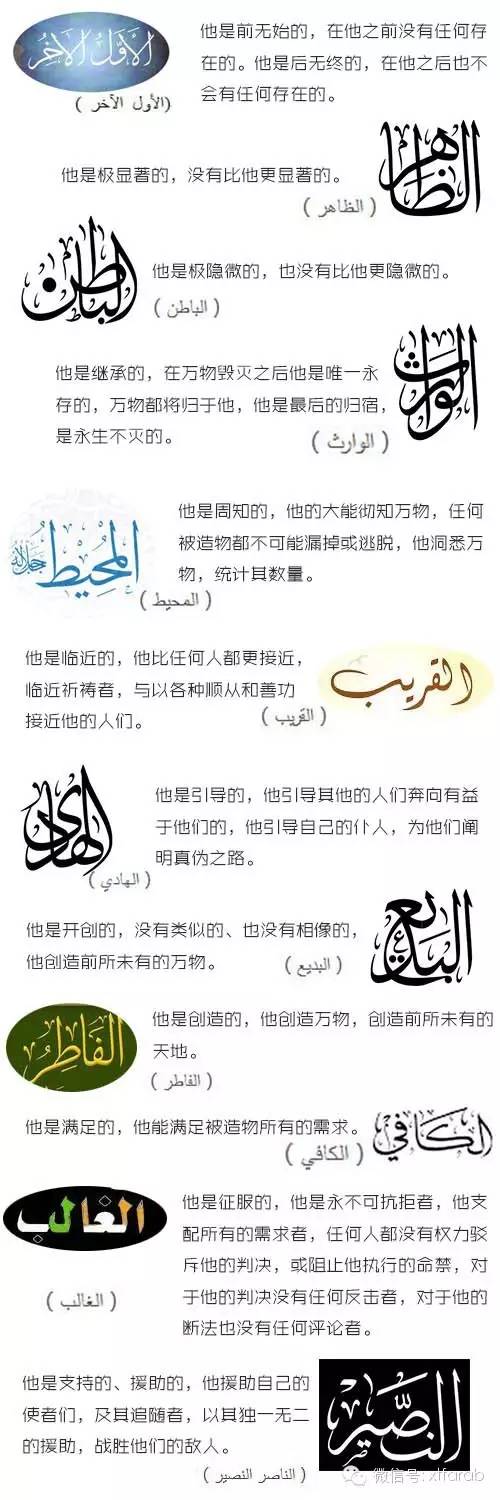 الأول الآخر
他是前无始的，在他之前没有任何存
在的。他是后无终的，在他之后也不
会有任何存在的。
(الأول الآخر)
الظاهر
他是极显著的，没有比他更显著的。
(الظاهر)
الباطن
他是极隐微的，也没有比他更隐微的。
(الباطن)
الوارث
他是继承的，在万物毁灭之后他是唯一永
存的，万物都将归于他，他是最后的归宿，
是永生不灭的。
(الوارث)
المحيط جل جلاله
他是周知的，他的大能彻知万物，任何
被造物都不可能漏掉或逃脱，他洞悉万
物，统计其数量。
(المحيط)
القريب
他是临近的，他比任何人都更接近，
临近祈祷者，与以各种顺从和善功
接近他的人们。
(القريب)
الهادي
他是引导的，他引导其他的人们奔向有益
于他们的，他引导自己的仆人，为他们阐
明真伪之路。
(الهادي)
البديع
他是开创的，没有类似的、也没有相像的，
他创造前所未有的万物。
(البديع)
الفاطر
他是创造的，他创造万物，创造前所未有的
天地。
(الفاطر)
الكافي
他是满足的，他能满足被造物所有的需求。
(الكافي)
الغالب
他是征服的，他是永不可抗拒者，他支
配所有的需求者，任何人都没有权力驳
斥他的判决，或阻止他执行的命禁，对
于他的判决没有任何反击者，对于他的
断法也没有任何评论者。
(الغالب)
النصير
他是支持的、援助的，他援助自己的
使者们，及其追随者，以其独一无二
的援助，战胜他们的敌人。
(الناصر النصير)
微信号: xffarab